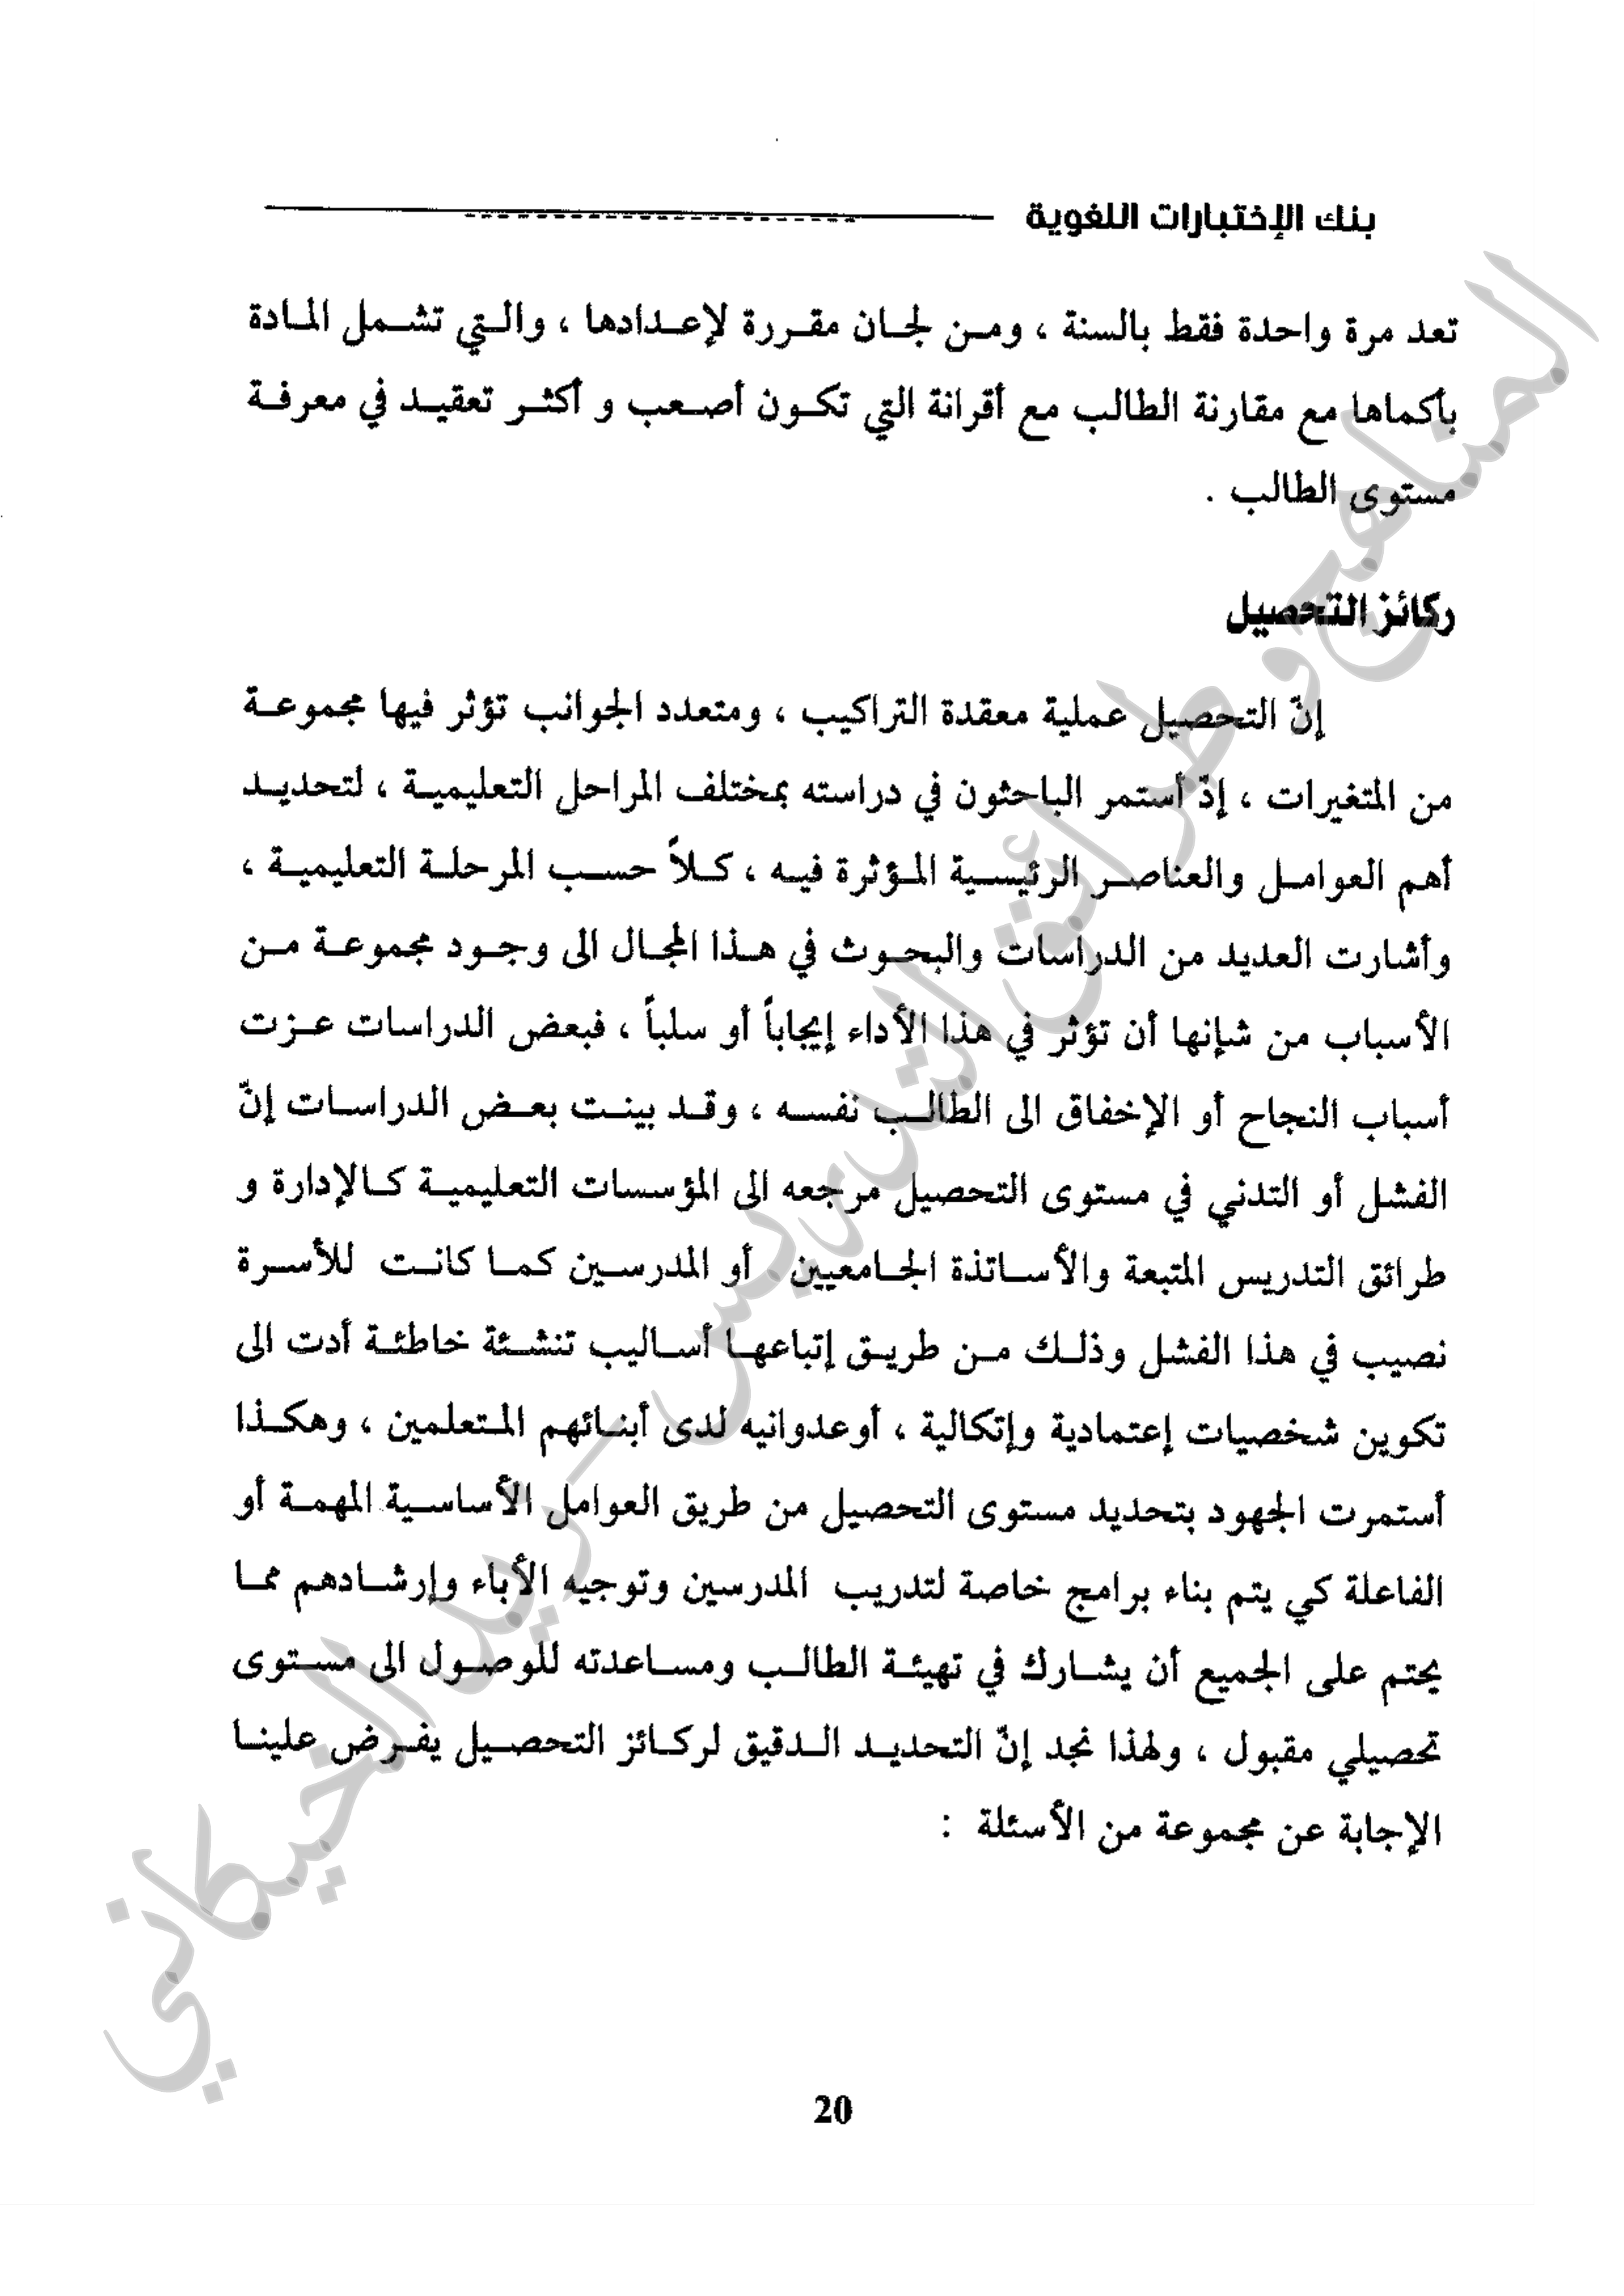 بنك الإختبارات اللغوية
تعد مرة واحدة فقط بالسنة ، ومن لجان مقررة لإعدادها ، والتي تشمل المادة
بأكماها مع مقارنة الطالب مع أقرانة التي تكون أصعب و أكثر تعقيد في معرفة
مستوى الطالب .
ركائز التحصيل
إنّ التحصيل عملية معقدة التراكيب ، ومتعدد الجوانب تؤثر فيها مجموعة
من المتغيرات ، إذّ أستمر الباحثون في دراسته بمختلف المراحل التعليمية ، لتحديد
أهم العوامل والعناصر الرئيسية المؤثرة فيه ، كلاً حسب المرحلة التعليمية ،
وأشارت العديد من الدراسات والبحوث في هذا المجال الى وجود مجموعة من
الأسباب من شإنها أن تؤثر في هذا الأداء إيجاباً أو سلباً ، فبعض الدراسات عزت
أسباب النجاح أو الإخفاق الى الطالب نفسه ، وقد بينت بعض الدراسات إنّ
الفشل أو التدني في مستوى التحصيل مرجعه الى المؤسسات التعليمية كالإدارة و
طرائق التدريس المتبعة والأساتذة الجامعيين أو المدرسين كما كانت للأسرة
نصيب في هذا الفشل وذلك من طريق إتباعها أساليب تنشئة خاطئة أدت الى
تكوين شخصيات إعتمادية وإتكالية ، أوعدوانيه لدى أبنائهم المتعلمين ، وهكذا
أستمرت الجهود بتحديد مستوى التحصيل من طريق العوامل الأساسية المهمة أو
الفاعلة كي يتم بناء برامج خاصة لتدريب المدرسين وتوجيه الأباء وإرشادهم مما
يحتم على الجميع أن يشارك في تهيئة الطالب ومساعدته للوصول الى مستوى
تحصيلي مقبول ، ولهذا نجد إنّ التحديد الدقيق لركائز التحصيل يفرض علينا
الإجابة عن مجموعة من الأسئلة :
20